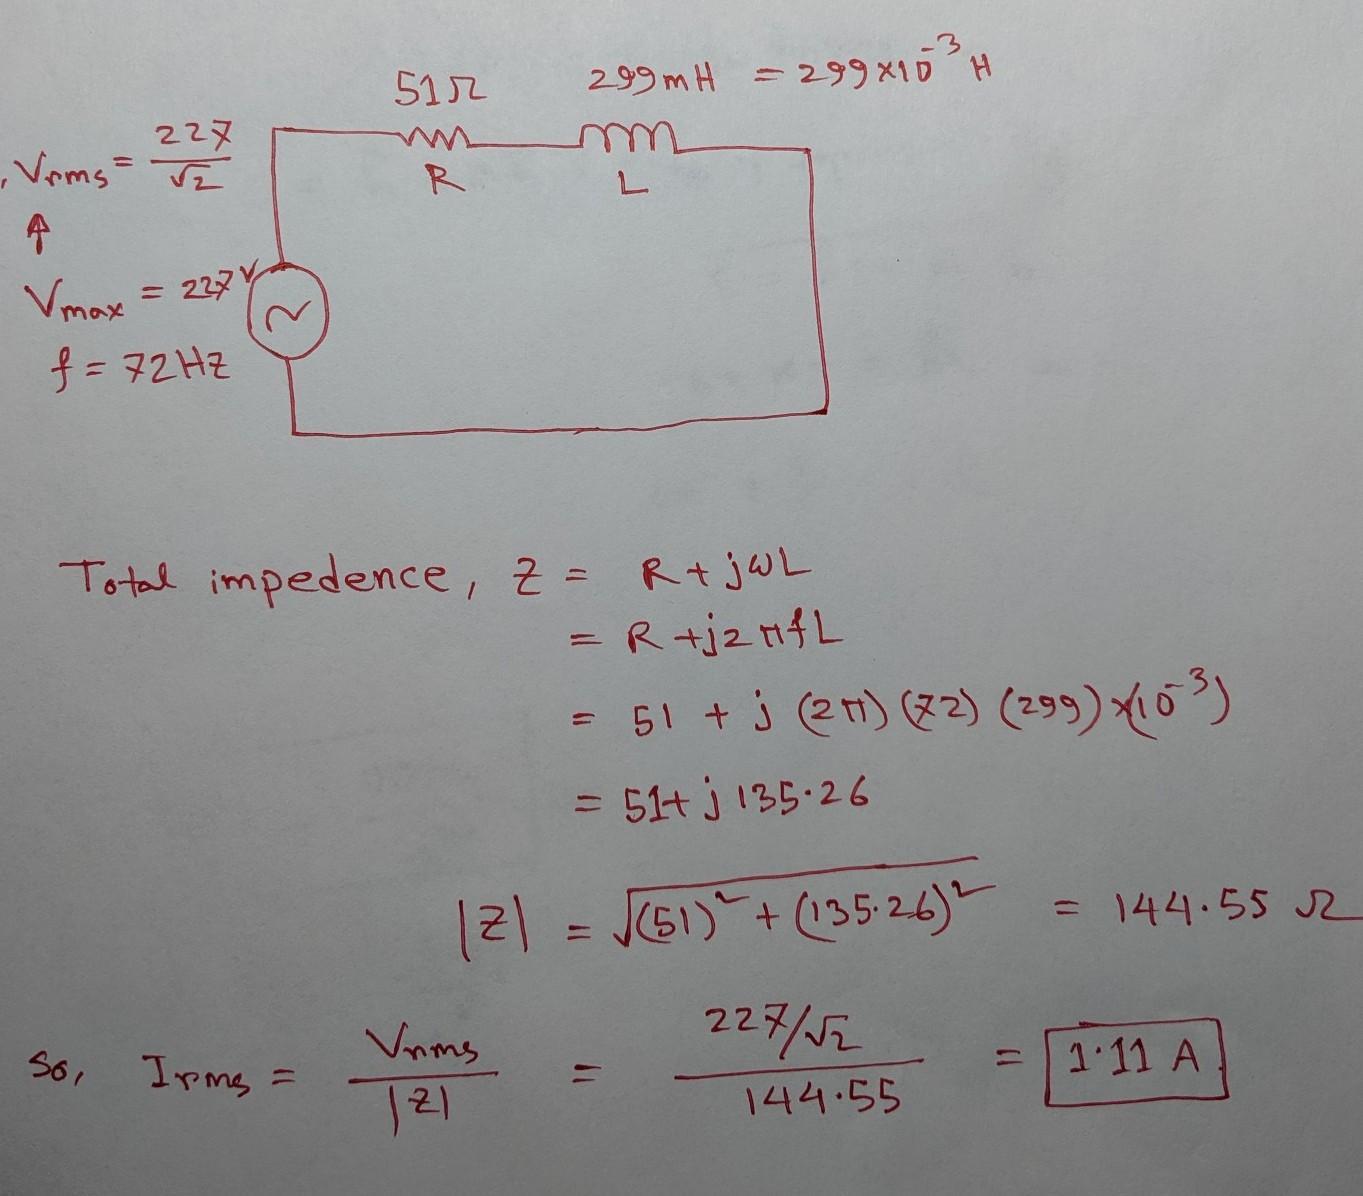 51Ω 299mH = 299×10⁻³ H
Vrms = 227/√2
R L
↑
Vmax = 227V
~
f = 72HZ
Total impedence, Z = R + jωL
= R + j2πfL
= 51 + j (2π) (72) (299) ×10⁻³)
= 51+ j 135.26
|Z| = √(51)² + (135.26)² = 144.55 Ω
So, Irms = Vrms/|Z| = 227/√2/144.55 = 1.11 A